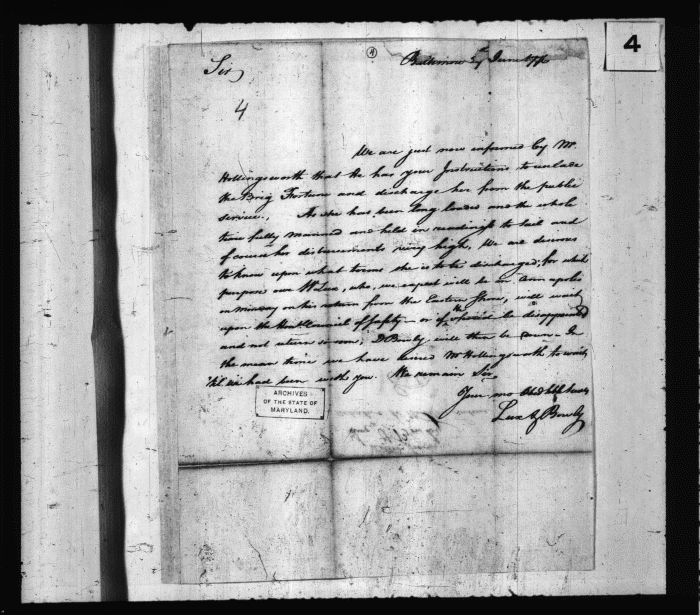 4
④
Baltimore June 1776
Sir
4
We are just now informed by Mr.
Hollingsworth that he has your Instructions to unlade
the Brig Fortune and discharge her from the public
service. As she has been long loaded and the whole
time fully manned and held in readiness to sail and
of course her disbursements very high, We are desirous
to know upon what terms she is to be discharged, for which
purpose our W Lux, who, we expect will be in Annapolis
in on his return from the Eastern Shore, will wait
upon the Council of Safety — or if he should be disappointed
and not return so soon, D Bowly will then be down. In
the mean time we have Mr Hollingsworth to wait
'til we had seen with you. We remain Sir
Your mo Obed hble Servts
Lux & Bowly
ARCHIVES
OF THE STATE OF
MARYLAND.